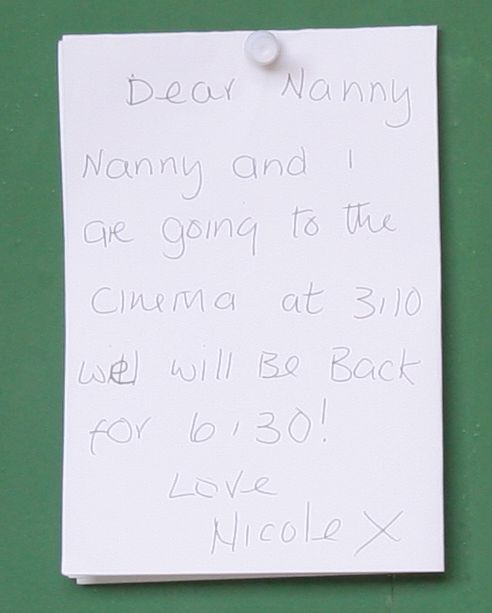 Dear Nanny
Nanny and I
are going to the
cinema at 3,10
we will Be Back
for 6,30!
Love
Nicole X